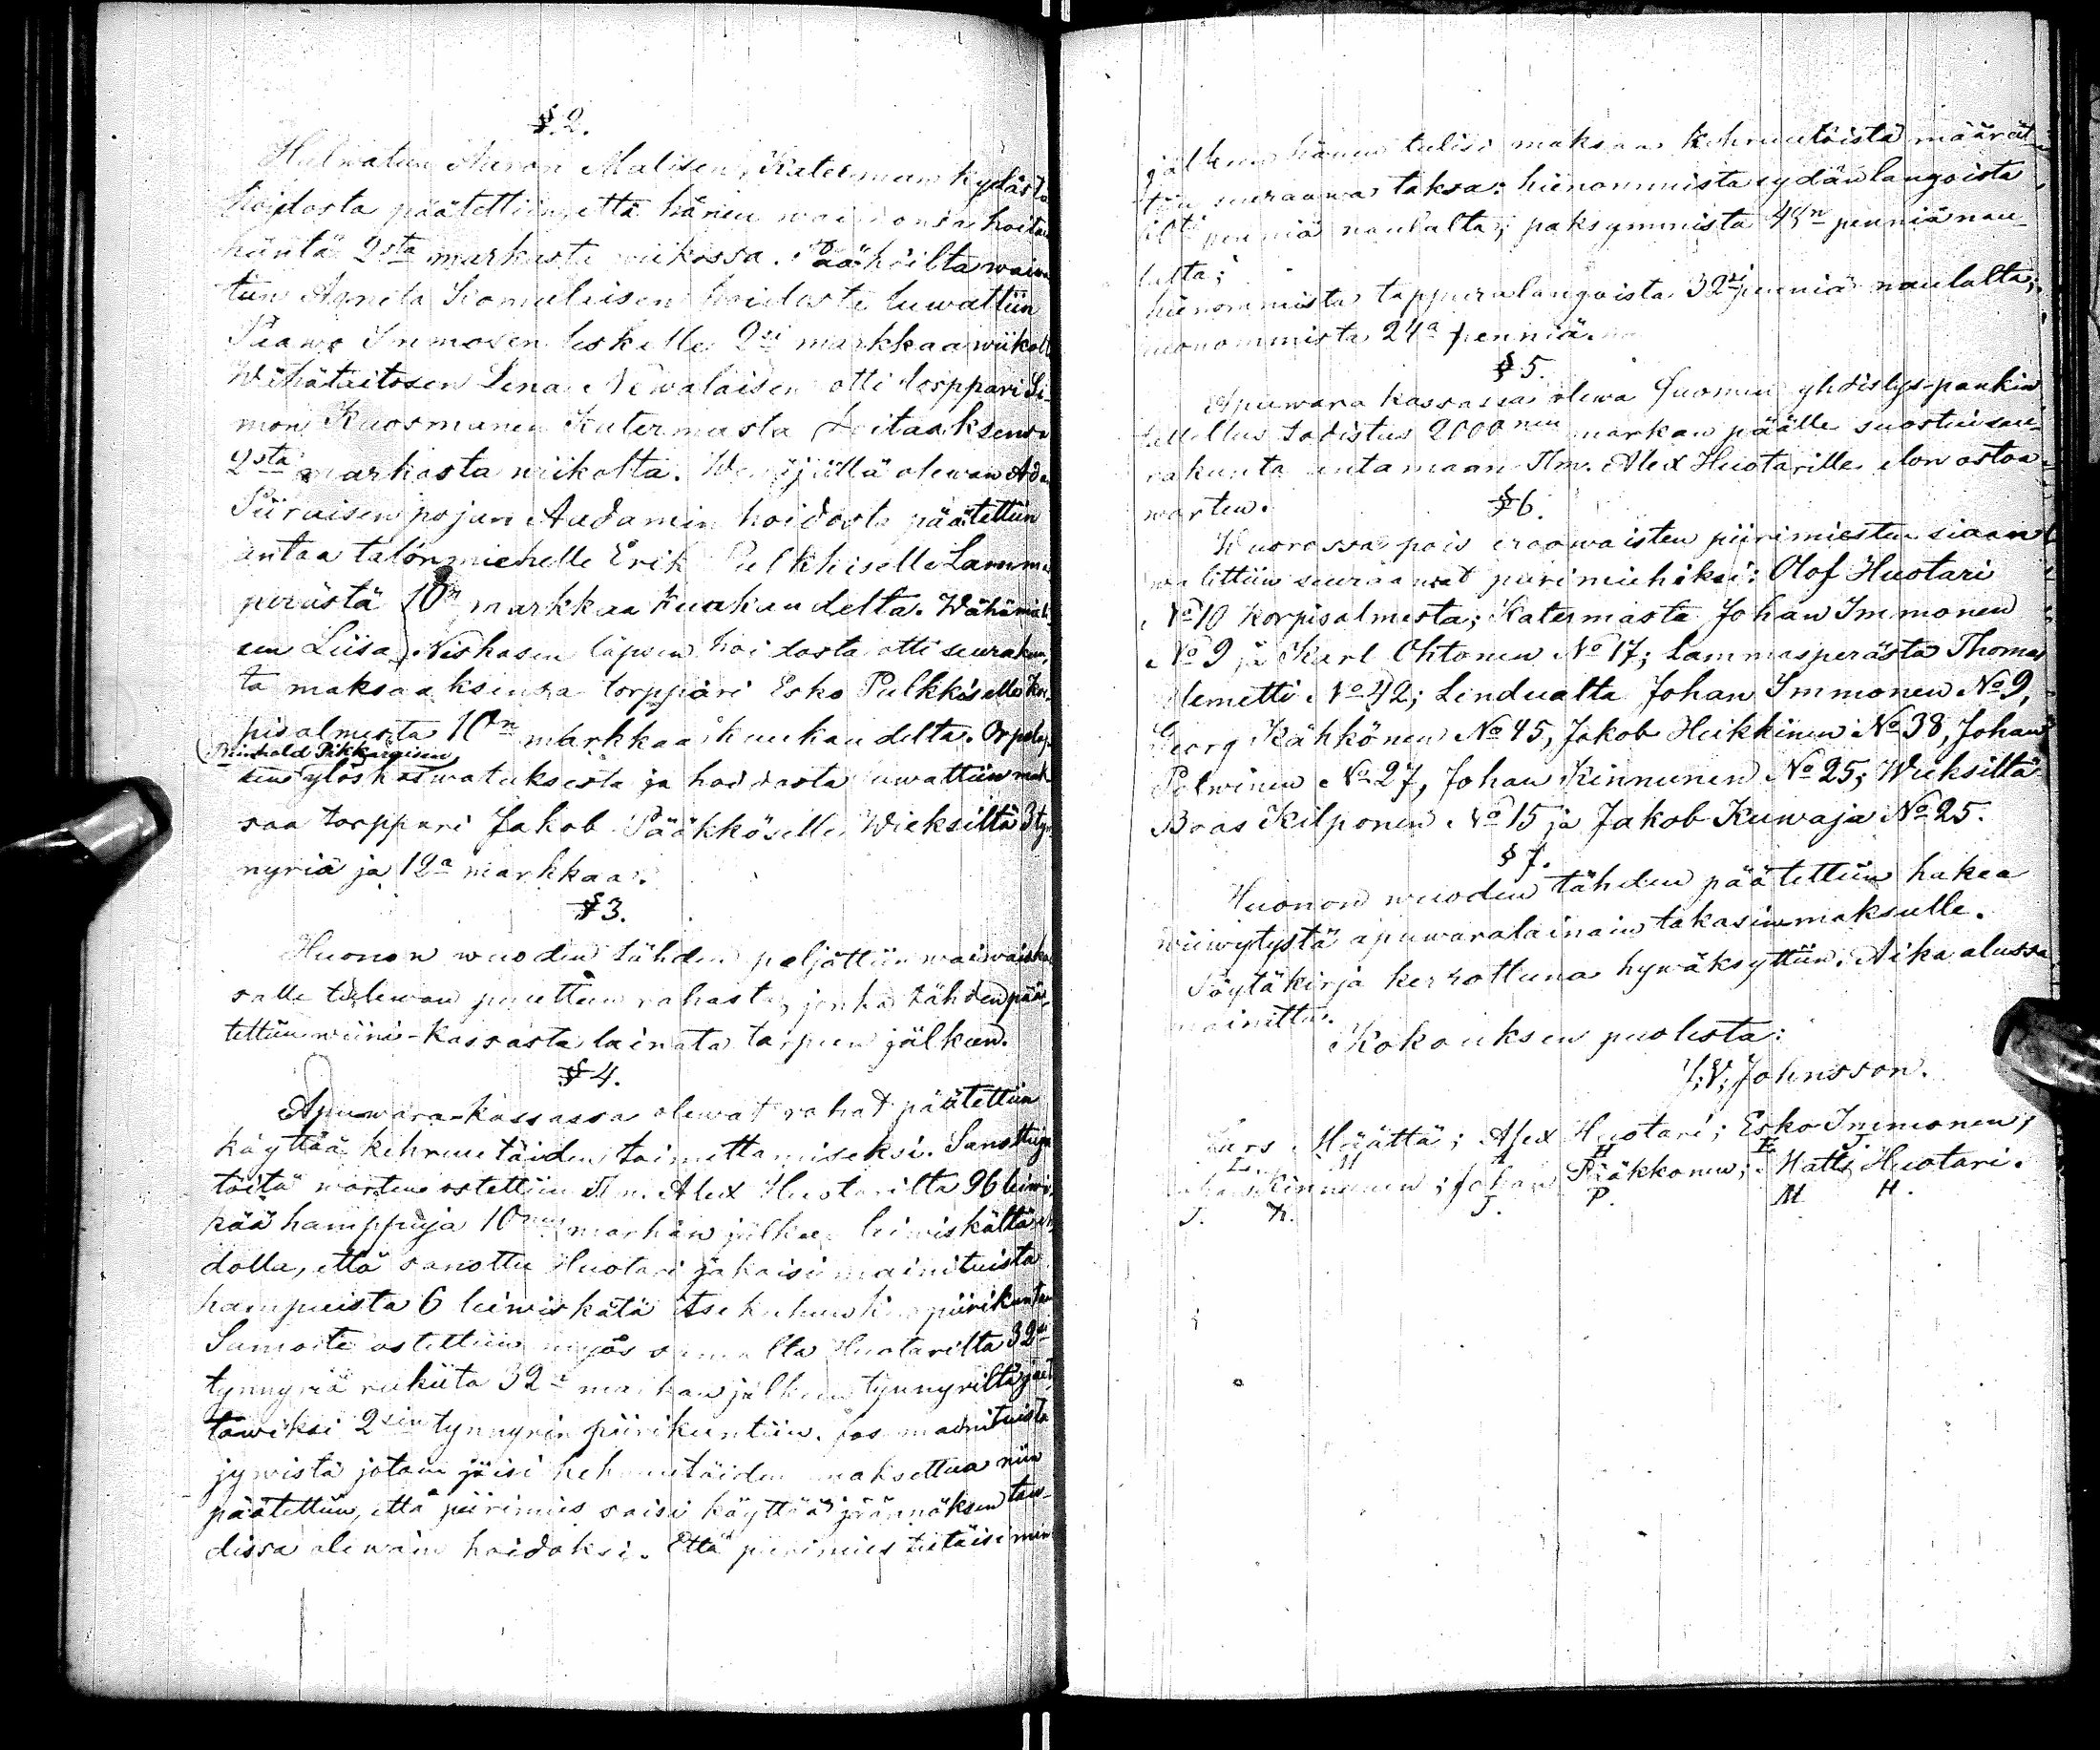 §.2.
Hulwatun Aaron Malisen, Katerman kylästä
hoidosta päätettiin, että hänen waimonsa hoitaa
häntä 2sta markasta wiikossa. Pää höiltä waiwa
tun Agneta Komulaisen hoidosta luwattiin
Paawo Immosen leskelle 2si markkaa wiikolta
Wähätaitosen Lena Newalaisen otti torppari Si-
mon Kuosmanen Katermasta hoitaaksensa
2sta markasta wiikolta. olewan Ada
Piiraisen pojan Aadamin hoidosta päätettiin
antaa talonmiehelle Erik Pulkkiselle Lamma
perästä 10n markkaa kuukaudelta. Wähämieli
sen Liisa Nishasen lapsen hoidosta otti seurakun
ta maksaaksensa torppari Esko Pulkkiselle Kor-
pisalmesta 10n markkaa kuukaudelta. Orpolap
Reinhold Pikkaraisen
sen ylöskaswatuksesta ja hoidosta luwattiin mak
saa torppari Jakob Pääkköselle Wieksiltä 3 tyn
nyriä ja 12a markkaa.
§3.
Huonon wuoden tähden peljättiin waiwaiskas
salle tulewan puuttuu rahasta, jonka tähden pää-
tettiin wiina-kassasta lainata tarpeen jälkeen.
§4.
Apuwara-kassassa olewat rahat päätettiin
käyttää kehruutöiden toimittamiseksi. Sanottuja
töitä warten ostettiin Hm. Alex Huotarilta 96 leiwis
kää hamppuja 10nen markan jälkeen leiwiskältä eh
dolla, että sanottu Huotari jakaisi mainituista
hampuista 6 leiwiskätä itse kuhunkin piirikuntaan
Samoite ostettiin myös samalta Huotarilta 32si
tynnyriä rukiita 32i markan jälkeen tynnyriltä jaet
tawiksi 2sin tynnyrin piirikuntiin. Jos mainituista
jywistä jotain jäisi kehruutöiden maksettua niin
päätettiin, että piirimies saisi käyttää jäännöksen tau-
dissa olewain hoidoksi. Että piirimies tietäisi min
jälkeen hänen tulisi maksaa kehruutöistä määrät-
tiin seuraawa taksa: hienommista sydänlangoista
penniä naulalta; paksymmista 48n penniä nau-
lalta;
hienommista tappuralangoista 32si penniä naulalta;
huonommista 24a penniä.
§5.
Apuwara kassassa olewa Suomen yhdistys-pankin
talletus todistus 2000nen markan päälle suostui seu-
rakunta antamaan Hm. Alex Huotarille elon ostoa
warten.
§6.
Wuorossa pois eroawaisten piirimiesten siaan
walittiin seuraawat piirimiehiksi: Olof Huotari
No 10 Korpisalmesta; Katermasta Johan Immonen
No 9 ja Karl Ohtonen No 17; Lammasperästä Thomas
Klemetti No 42; Lendualta Johan Immonen No 9,
Georg Kähkönen No 45, Jakob Heikkinen No 38, Johan
Polwinen No 27, Johan Kinnunen No 25; Wieksiltä
Boas Kilponen No 15 ja Jakob Kuwaja No 25.
§7.
Huonon wuoden tähden päätettiin hakea
wiiwytystä apuwaralainain takasinmaksulle.
Pöytäkirja kerrottuna hywäksyttiin. Aika alussa
mainittu.
Kokouksen puolesta:
J. V. Johnsson.
Lars Määttä; Alex Huotari; Esko Immonen;
L. M A H E. J.
Johan Kinnunen; Johan Pääkkönen; Matts Huotari.
J. K. J. P. M H.